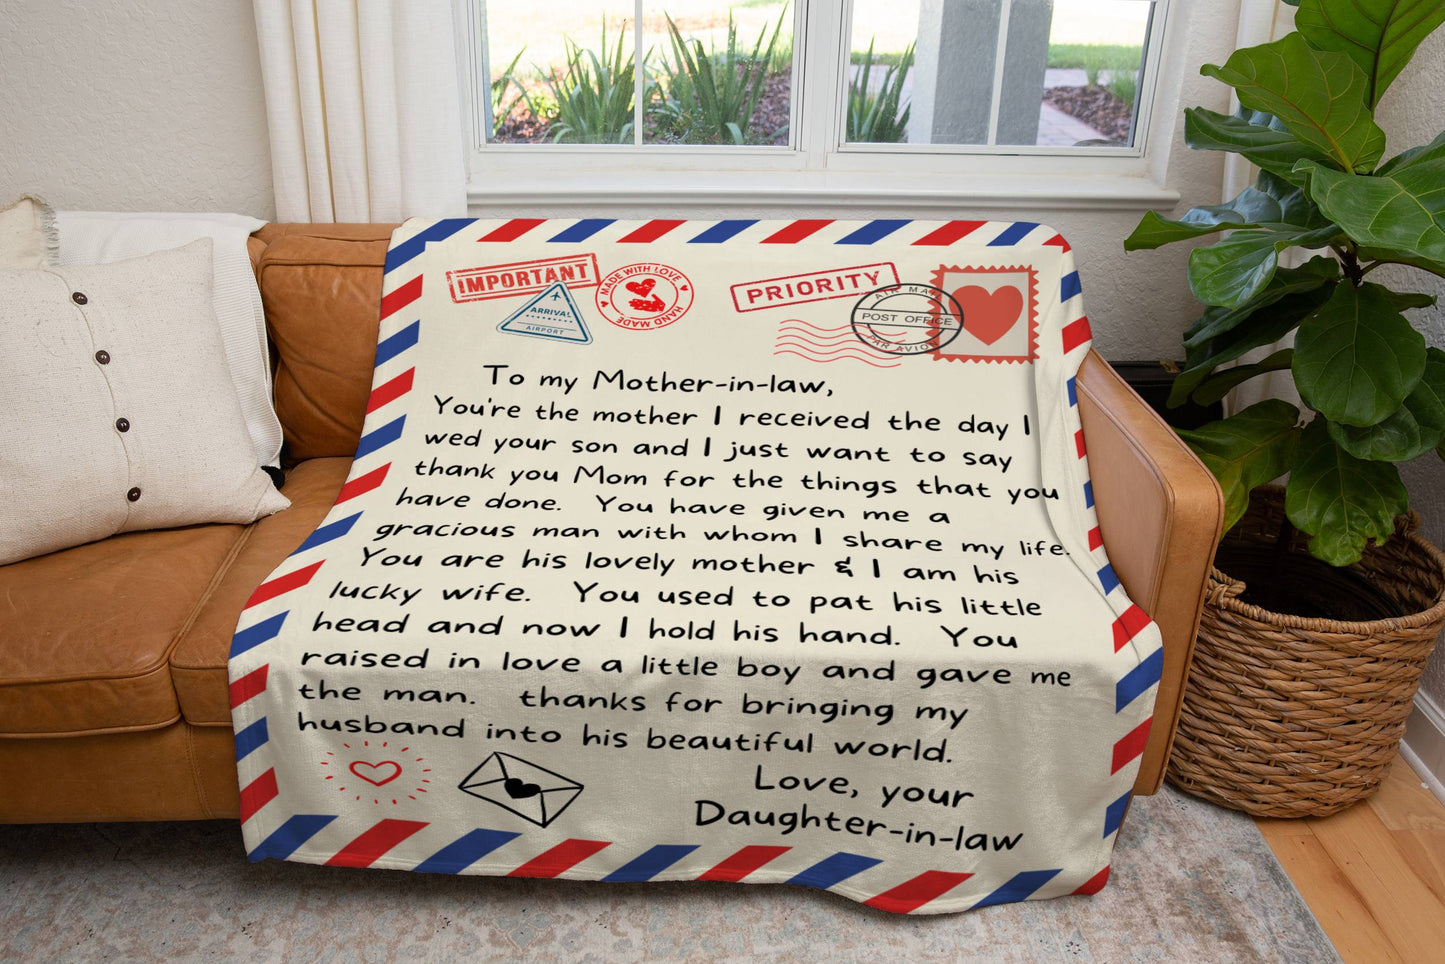 IMPORTANT
MADE WITH LOVE
HAND MADE
ARRIVAL
AIRPORT
PRIORITY
AIR MAIL
POST OFFICE
PAR AVION
To my Mother-in-law,
You're the mother I received the day I
wed your son and I just want to say
thank you Mom for the things that you
have done. You have given me a
gracious man with whom I share my life.
You are his lovely mother & I am his
lucky wife. You used to pat his little
head and now I hold his hand. You
raised in love a little boy and gave me
the man. thanks for bringing my
husband into his beautiful world.
Love, your
Daughter-in-law